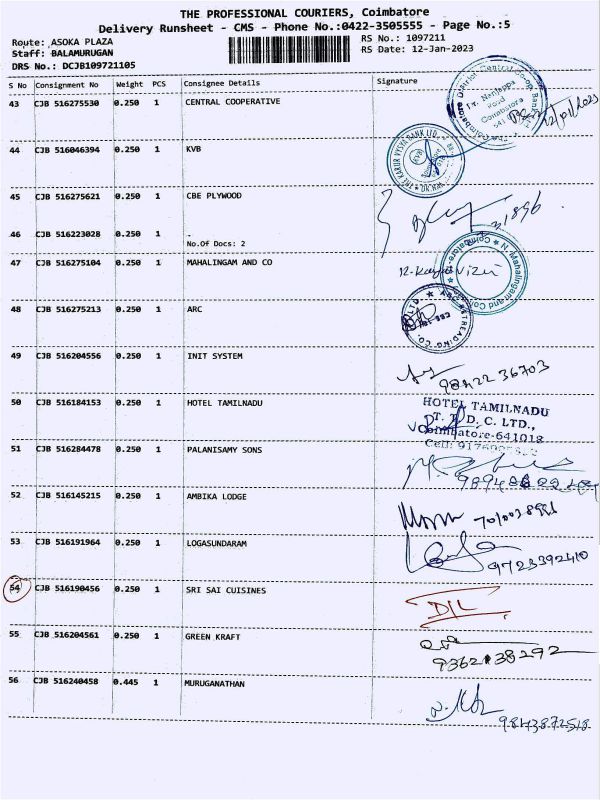 THE PROFESSIONAL COURIERS, Coimbatore
Delivery Runsheet - CMS - Phone No.:0422-3505555 - Page No.:5
Route: ASOKA PLAZA
RS No.: 1097211
Staff: BALAMURUGAN
RS Date: 12-Jan-2023
DRS No.: DCJB109721105
S No Consignment No Weight PCS Consignee Details Signature
43 CJB 516275530 0.250 1 CENTRAL COOPERATIVE
44 CJB 516046394 0.250 1 KVB
45 CJB 516275621 0.250 1 CBE PLYWOOD
46 CJB 516223028 0.250 1 -
No.Of Docs: 2
47 CJB 516275104 0.250 1 MAHALINGAM AND CO
48 CJB 516275213 0.250 1 ARC
49 CJB 516204556 0.250 1 INIT SYSTEM
98422 36703
50 CJB 516184153 0.250 1 HOTEL TAMILNADU
HOTEL TAMILNADU
T. T. D. C. LTD.,
Coimbatore-641018
51 CJB 516284478 0.250 1 PALANISAMY SONS
52 CJB 516145215 0.250 1 AMBIKA LODGE
53 CJB 516191964 0.250 1 LOGASUNDARAM
9723392410
54 CJB 516190456 0.250 1 SRI SAI CUISINES D/L
55 CJB 516204561 0.250 1 GREEN KRAFT
9362138292
56 CJB 516240458 0.445 1 MURUGANATHAN
9843872518